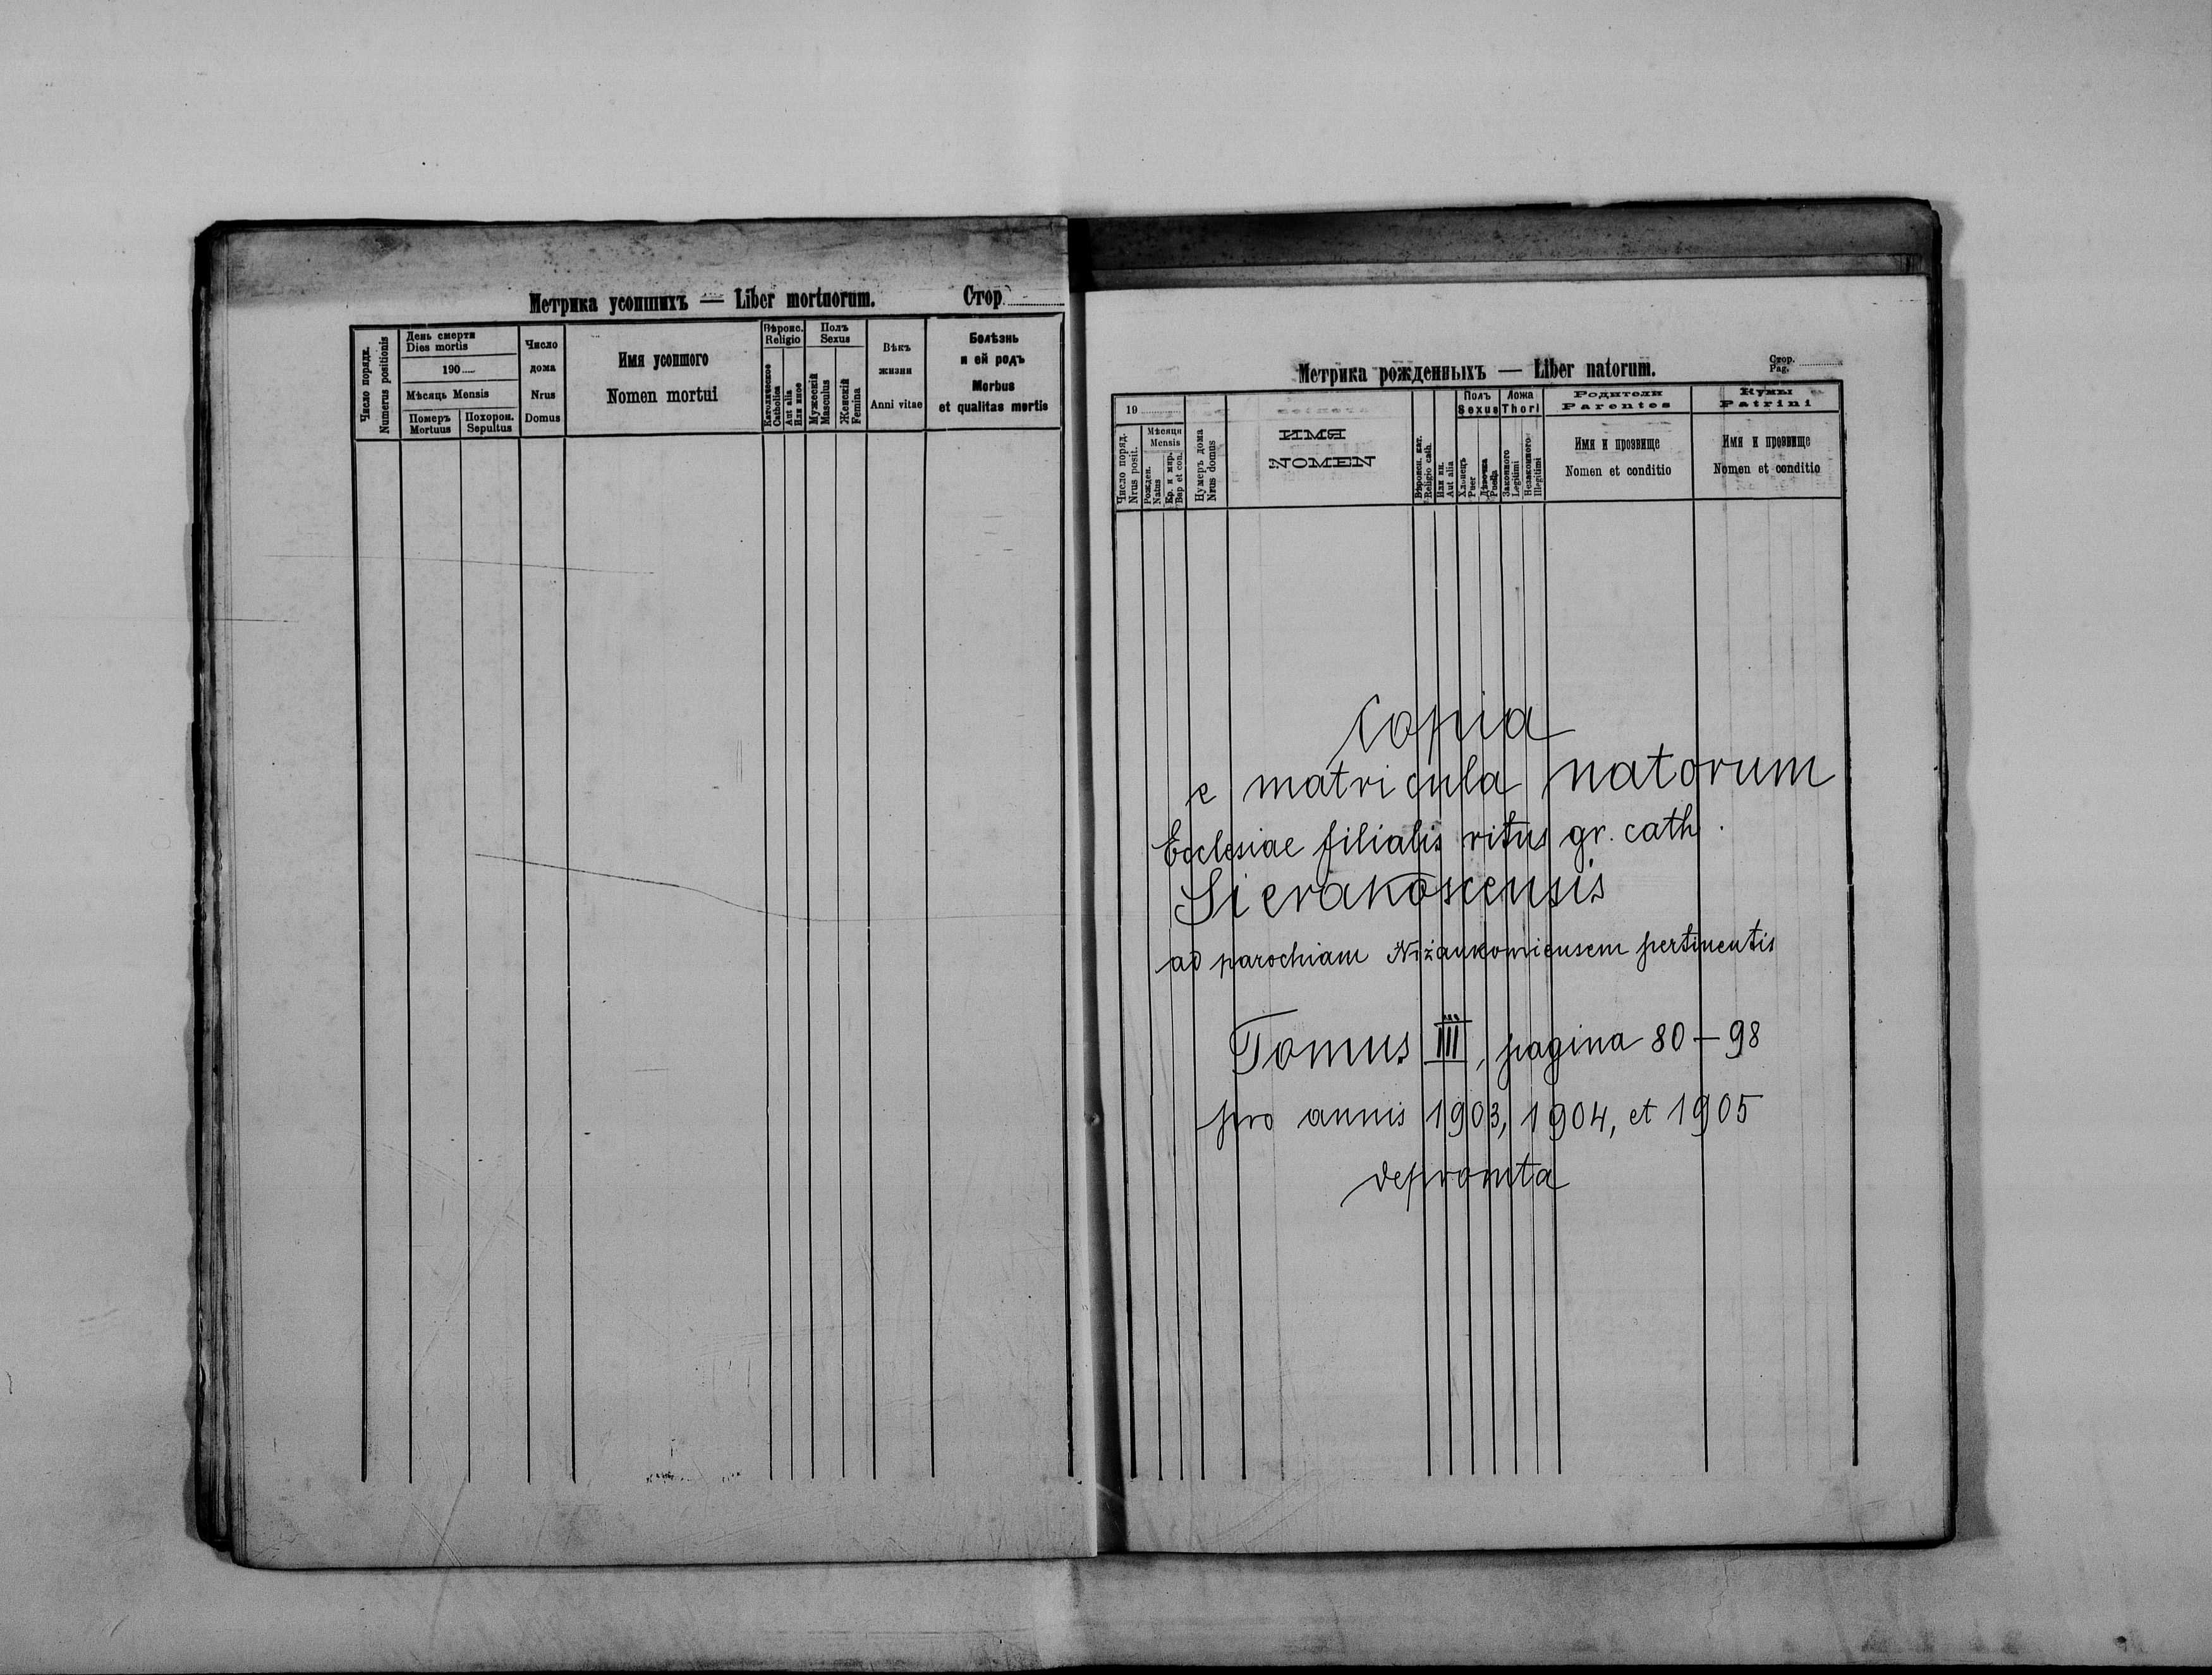 Метрика усопшихъ — Liber mortuorum. Стор.
Число порядк.
Numerus positionis
День смерти
Dies mortis
190
Мѣсяць Mensis
Померъ
Mortuus
Похорон.
Sepultus
Число
дома
Nrus
Domus
Имя усопшого
Nomen mortui
Вѣроис.
Religio
Католическое
Catholica
Aut alia
Или иное
Полъ
Sexus
Мужескій
Masculus
Женскій
Femina
Вѣкъ
жизни
Anni vitae
Болѣзнь
и ей родъ
Morbus
et qualitas mortis
Метрика рожденныхъ — Liber natorum.
Стор.
Pag.
19
Число поряд.
Nrus posit.
Мѣсяця
Mensis
Рожден.
Natus
Кр. и мир.
Bap et con.
Нумеръ дома
Nrus domus
ИМЯ
NOMEN
Вѣроисп. кат.
Religio cath.
Или ин.
Aut alia
Полъ
Sexus
Хлопецъ
Puer
Дѣвочка
Puella
Ложа
Thori
Законного
Legitimi
Незаконного
Illegitimi
Родители
Parentes
Имя и прозвище
Nomen et conditio
Кумы
Patrini
Имя и прозвище
Nomen et conditio
Copia
e matricula natorum
Ecclesiae filialis ritus gr. cath.
Sierakoscensis
ad parochiam Niżankowicensem pertinentis
Tomus III, pagina 80 – 98
pro annis 1903, 1904, et 1905
depromta